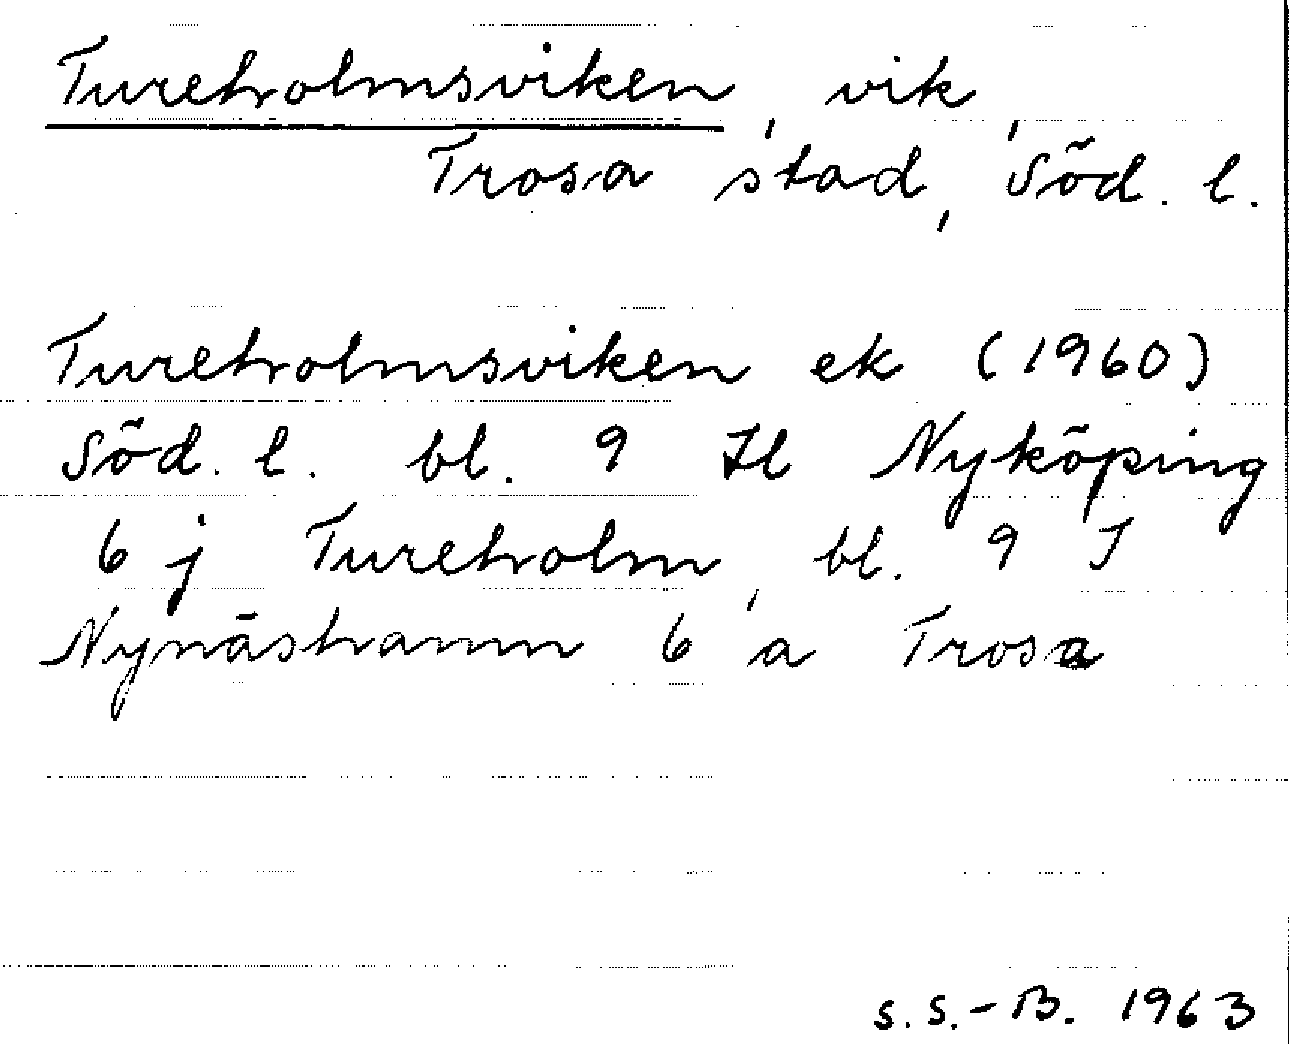 Tureholmsviken, vik,
Trosa stad, Söd. l.
Tureholmsviken ek (1960)
Söd. l. bl. 9 H Nyköping
6 j Tureholm, bl. 9 I
Nynäshamn 6 a Trosa
S.S.-B. 1963